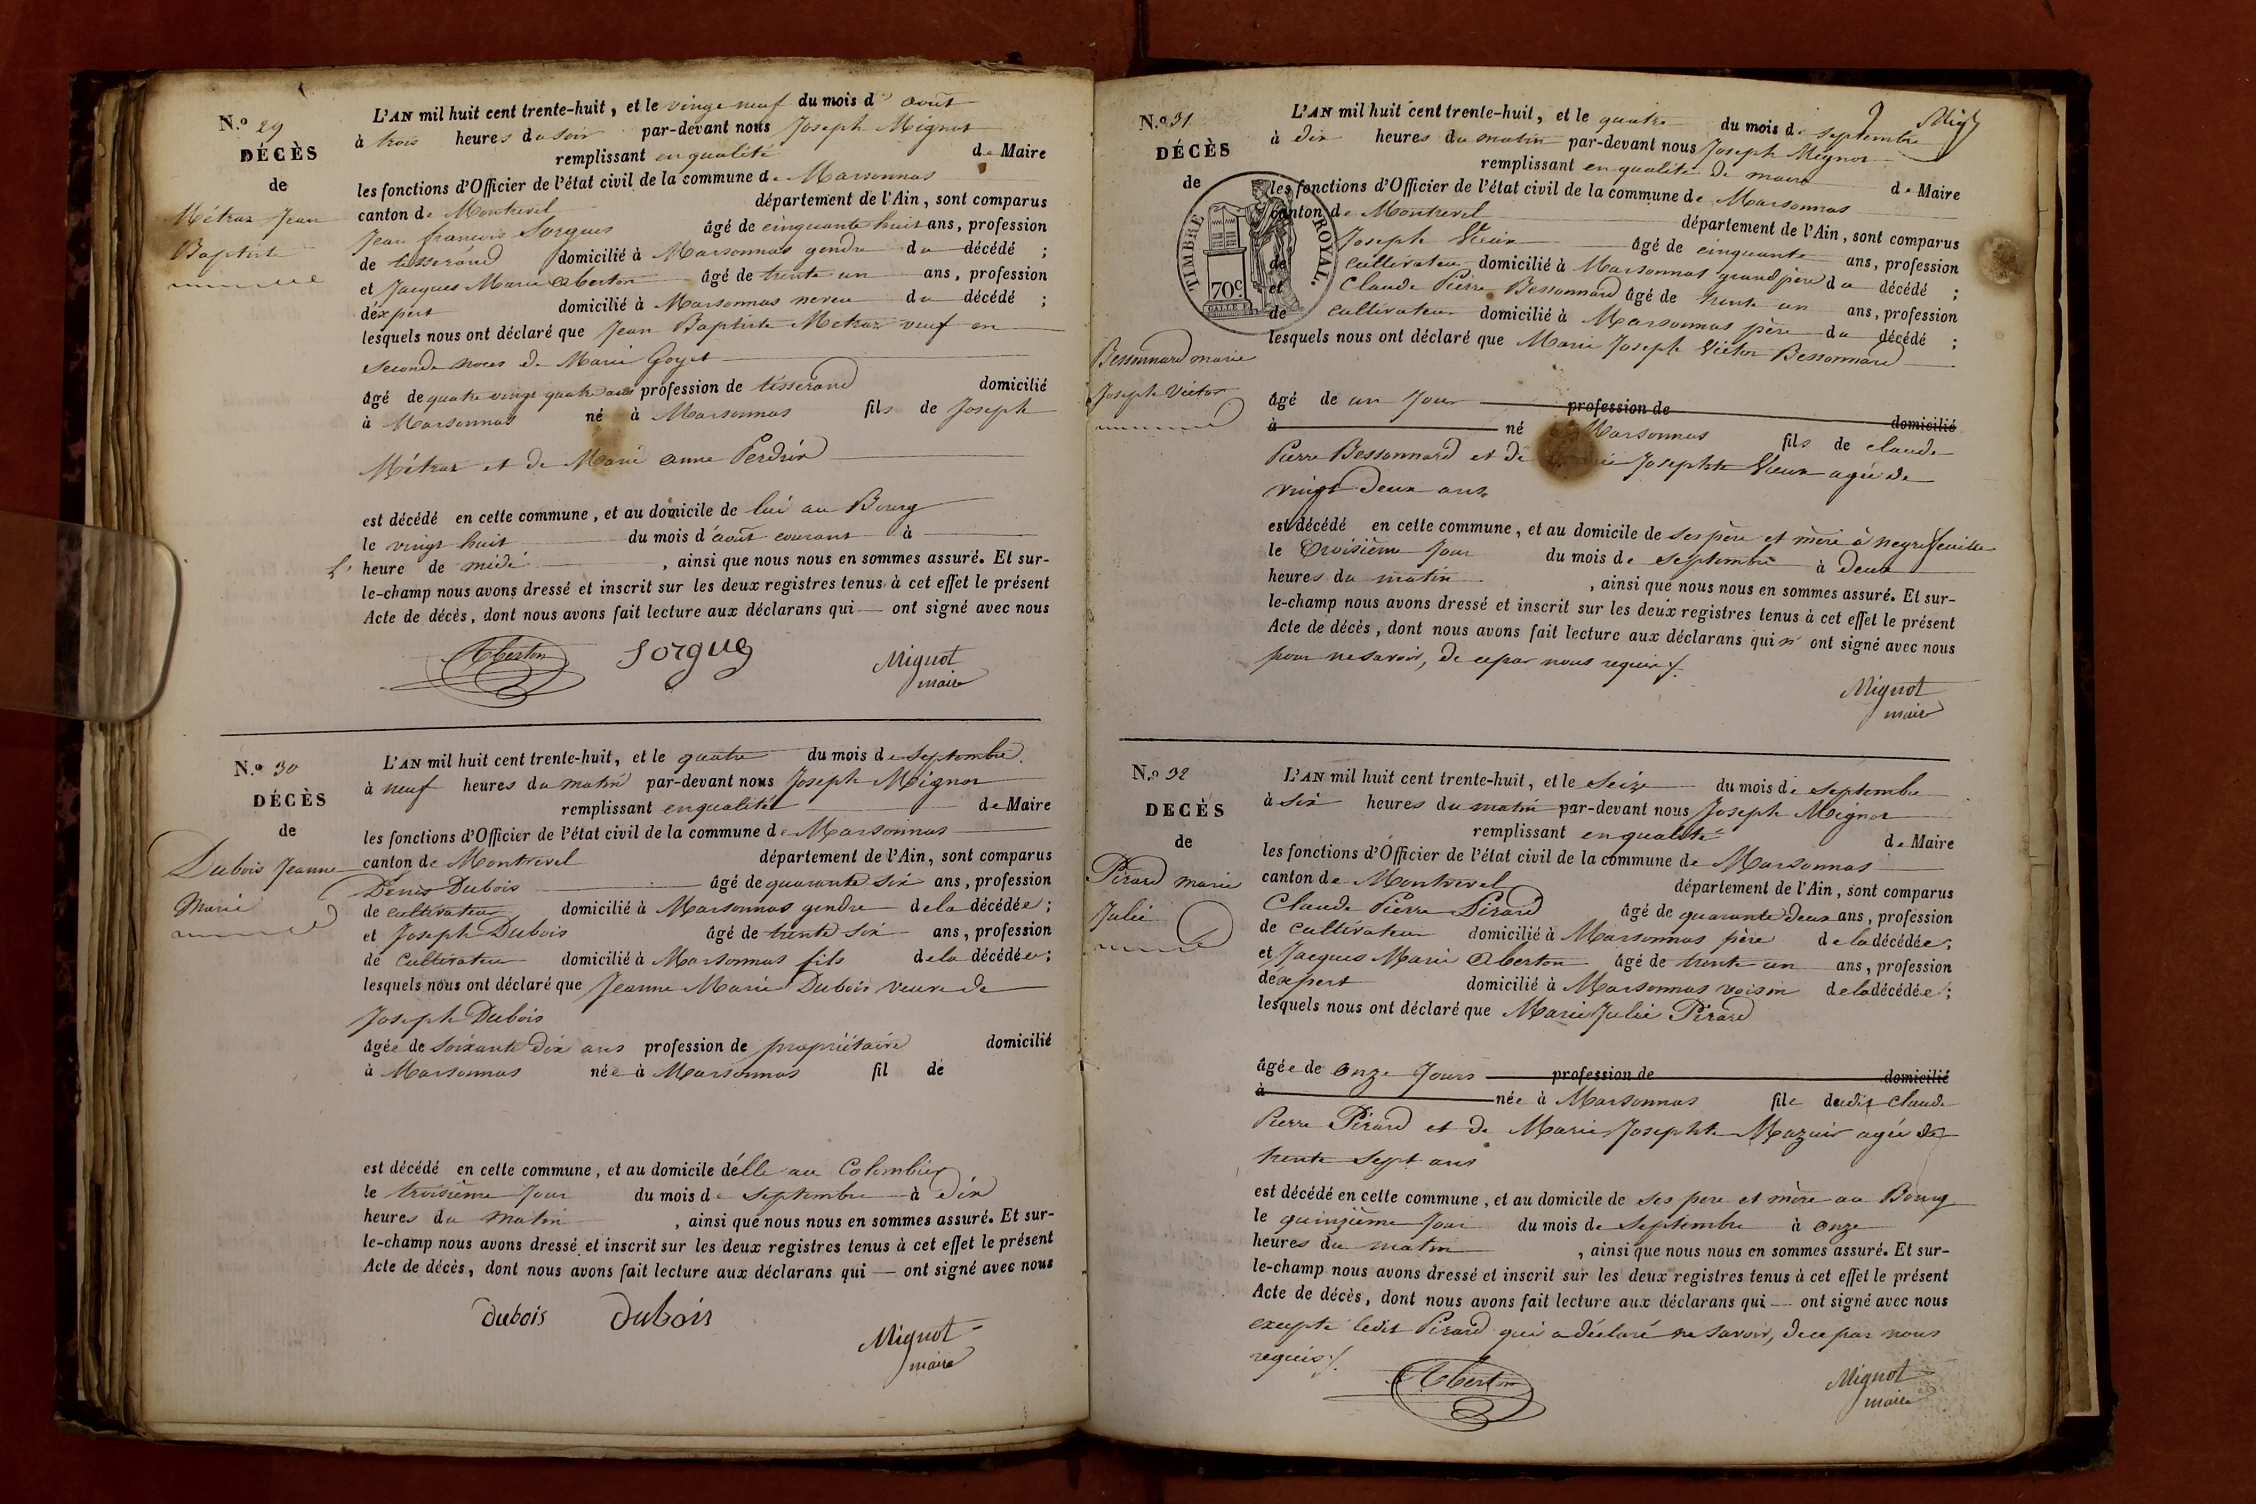 N.º 29
DÉCÈS
de
Métraz Jean
Baptiste
L'AN mil huit cent trente-huit, et le vingt neuf du mois d' août
à trois heures du soir par-devant nous Joseph Mignot
remplissant en qualité de Maire
les fonctions d'Officier de l'état civil de la commune de Marsonnas
canton de Montrevel département de l'Ain, sont comparus
Jean francois Sorgues âgé de cinquante huit ans, profession
de tisserand domicilié à Marsonnas gendre du décédé ;
et Jacques Marie Aberton âgé de trente un ans, profession
d'éxpert domicilié à Marsonnas neveu du décédé ;
lesquels nous ont déclaré que Jean Baptiste Metraz veuf en
seconde noces de Marie Goyet
âgé de quatre vingt quatre ans profession de tisserand domicilié
à Marsonnas né à Marsonnas fils de Joseph
Métraz et de Marie anne Perdrix
est décédé en cette commune, et au domicile de lui au Bourg
le vingt huit du mois d'août courant à
l' heure de midi , ainsi que nous nous en sommes assuré. Et sur-
le-champ nous avons dressé et inscrit sur les deux registres tenus à cet effet le présent
Acte de décès, dont nous avons fait lecture aux déclarans qui — ont signé avec nous
Aberton Sorgue Mignot
maire
N.º 30
DÉCÈS
de
Dubois Jeanne
Marie
L'AN mil huit cent trente-huit, et le quatre du mois de septembre
à neuf heures du matin par-devant nous Joseph Mignot
remplissant en qualité de Maire
les fonctions d'Officier de l'état civil de la commune de Marsonnas
canton de Montrevel département de l'Ain, sont comparus
Denis Dubois âgé de quarante six ans, profession
de cultivateur domicilié à Marsonnas gendre de la décédée ;
et Joseph Dubois âgé de trente six ans, profession
de cultivateur domicilié à Marsonnas fils de la décédée ;
lesquels nous ont déclaré que Jeanne Marie Dubois veuve de
Joseph Dubois
âgée de soixante dix ans profession de propriétaire domicilié
à Marsonnas née à Marsonnas fil de
est décédé en cette commune, et au domicile d'élle au Colombier
le troisième jour du mois de septembre à dix
heures du matin , ainsi que nous nous en sommes assuré. Et sur-
le-champ nous avons dressé et inscrit sur les deux registres tenus à cet effet le présent
Acte de décès, dont nous avons fait lecture aux déclarans qui — ont signé avec nous
dubois dubois Mignot
maire
N.º 31
DÉCÈS
de
Bessonnard marie
Joseph Victor
TIMBRE ROYAL
70c
L'AN mil huit cent trente-huit, et le quatre du mois de septembre
à dix heures du matin par-devant nous Joseph Mignot
remplissant en qualité de maire de Maire
les fonctions d'Officier de l'état civil de la commune de Marsonnas
canton de Montrevel département de l'Ain, sont comparus
Joseph Vieux âgé de cinquante ans, profession
de cultivateur domicilié à Marsonnas grand père du décédé ;
et Claude Pierre Bessonnard âgé de trente un ans, profession
de cultivateur domicilié à Marsonnas père du décédé ;
lesquels nous ont déclaré que Marie Joseph Victor Bessonnard
âgé de un jour profession de domicilié
à né à Marsonnas fils de claude
Pierre Bessonnard et de Marie Josephte Vieux agée de
vingt deux ans
est décédé en cette commune, et au domicile de ses père et mère à neyrefeuille
le troisième jour du mois de septembre à deux
heures du matin , ainsi que nous nous en sommes assuré. Et sur-
le-champ nous avons dressé et inscrit sur les deux registres tenus à cet effet le présent
Acte de décès, dont nous avons fait lecture aux déclarans qui n' ont signé avec nous
pour ne savoir, de ce par nous requis
Mignot
maire
N.º 32
DÉCÈS
de
Pirard marie
Julie
L'AN mil huit cent trente-huit, et le seize du mois de septembre
à six heures du matin par-devant nous Joseph Mignot
remplissant en qualité de Maire
les fonctions d'Officier de l'état civil de la commune de Marsonnas
canton de Montrevel département de l'Ain, sont comparus
Claude Pierre Pirard âgé de quarante deux ans, profession
de cultivateur domicilié à Marsonnas père de la décédée ;
et Jacques Marie Aberton âgé de trente un ans, profession
d'éxpert domicilié à Marsonnas voisin de la décédée ;
lesquels nous ont déclaré que Marie Julie Pirard
âgée de onze jours profession de domicilié
à née à Marsonnas file dudit Claude
Pierre Pirard et de Marie Josephte Mazuir agée de
trente sept ans
est décédé en cette commune, et au domicile de ses pere et mère au Bourg
le quinzième jour du mois de septembre à onze
heures du matin , ainsi que nous nous en sommes assuré. Et sur-
le-champ nous avons dressé et inscrit sur les deux registres tenus à cet effet le présent
Acte de décès, dont nous avons fait lecture aux déclarans qui — ont signé avec nous
excepté ledit Pirard qui a déclaré ne savoir, de ce par nous
requis
Aberton Mignot
maire